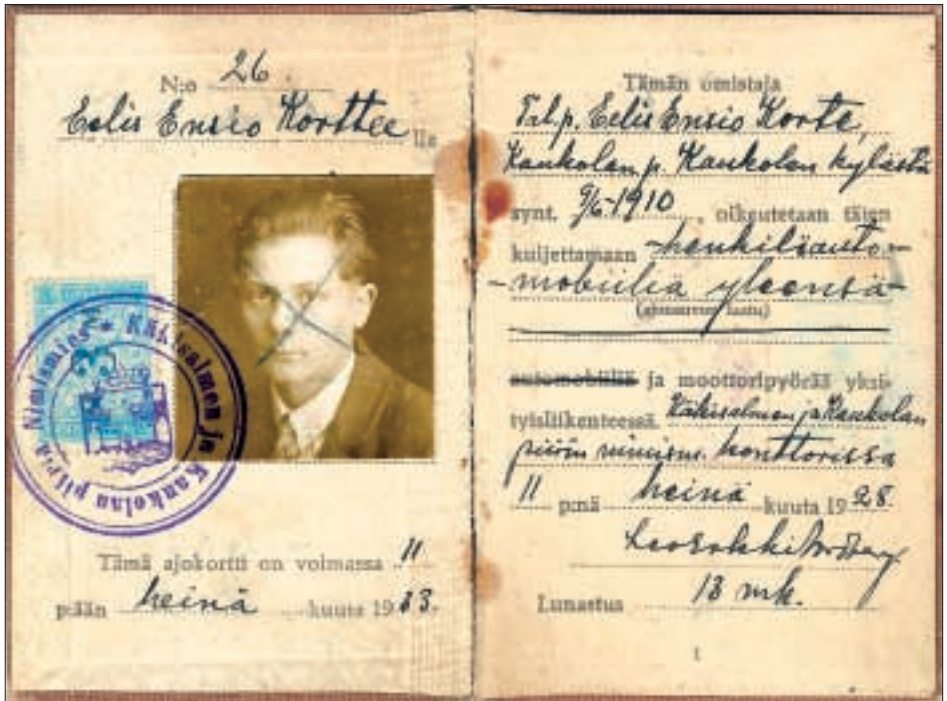 N:o 26.
Eelis Ensio Korttee lle
Nimismies • Käkisalmen ja Kaukolan piiriä
Tämä ajokortti on voimassa 11
p:ään heinä kuuta 1933.
Tämän omistaja
Tal.p. Eelis Ensio Korte,
Kaukolan p. Kaukolan kylästä
synt. 9/6-1910, oikeutetaan täten
kuljettamaan -henkilöauto-
-mobiilia yleensä-
(ajoneuvon laatu)
automobiilia ja moottoripyörää yksi-
tyisliikenteessä. Käkisalmen ja Kaukolan
piirin nimism. konttorissa
11 p:nä heinä kuuta 1928.
Lunastus 13 mk.
1